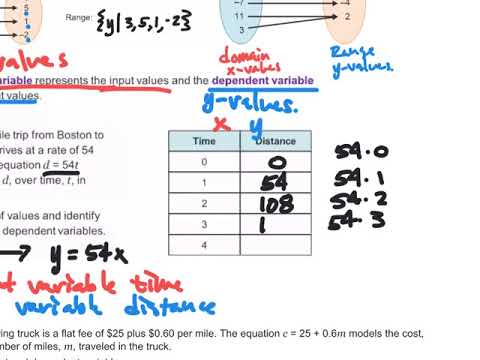 -7
-4
11
2
3
5
1
-2
Range: {y|3,5,1,-2}
values
domain
x-values
Range
y-values.
variable represents the input values and the dependent variable
values.
y-values.
x y
ile trip from Boston to
rives at a rate of 54
equation d = 54t
d, over time, t, in
Time Distance
0 0 54·0
1 54 54·1
2 108 54·2
3 1 54·3
4
of values and identify
dependent variables.
→ y=54x
variable time
variable distance
ving truck is a flat fee of $25 plus $0.60 per mile. The equation c = 25 + 0.6m models the cost,
mber of miles, m, traveled in the truck.